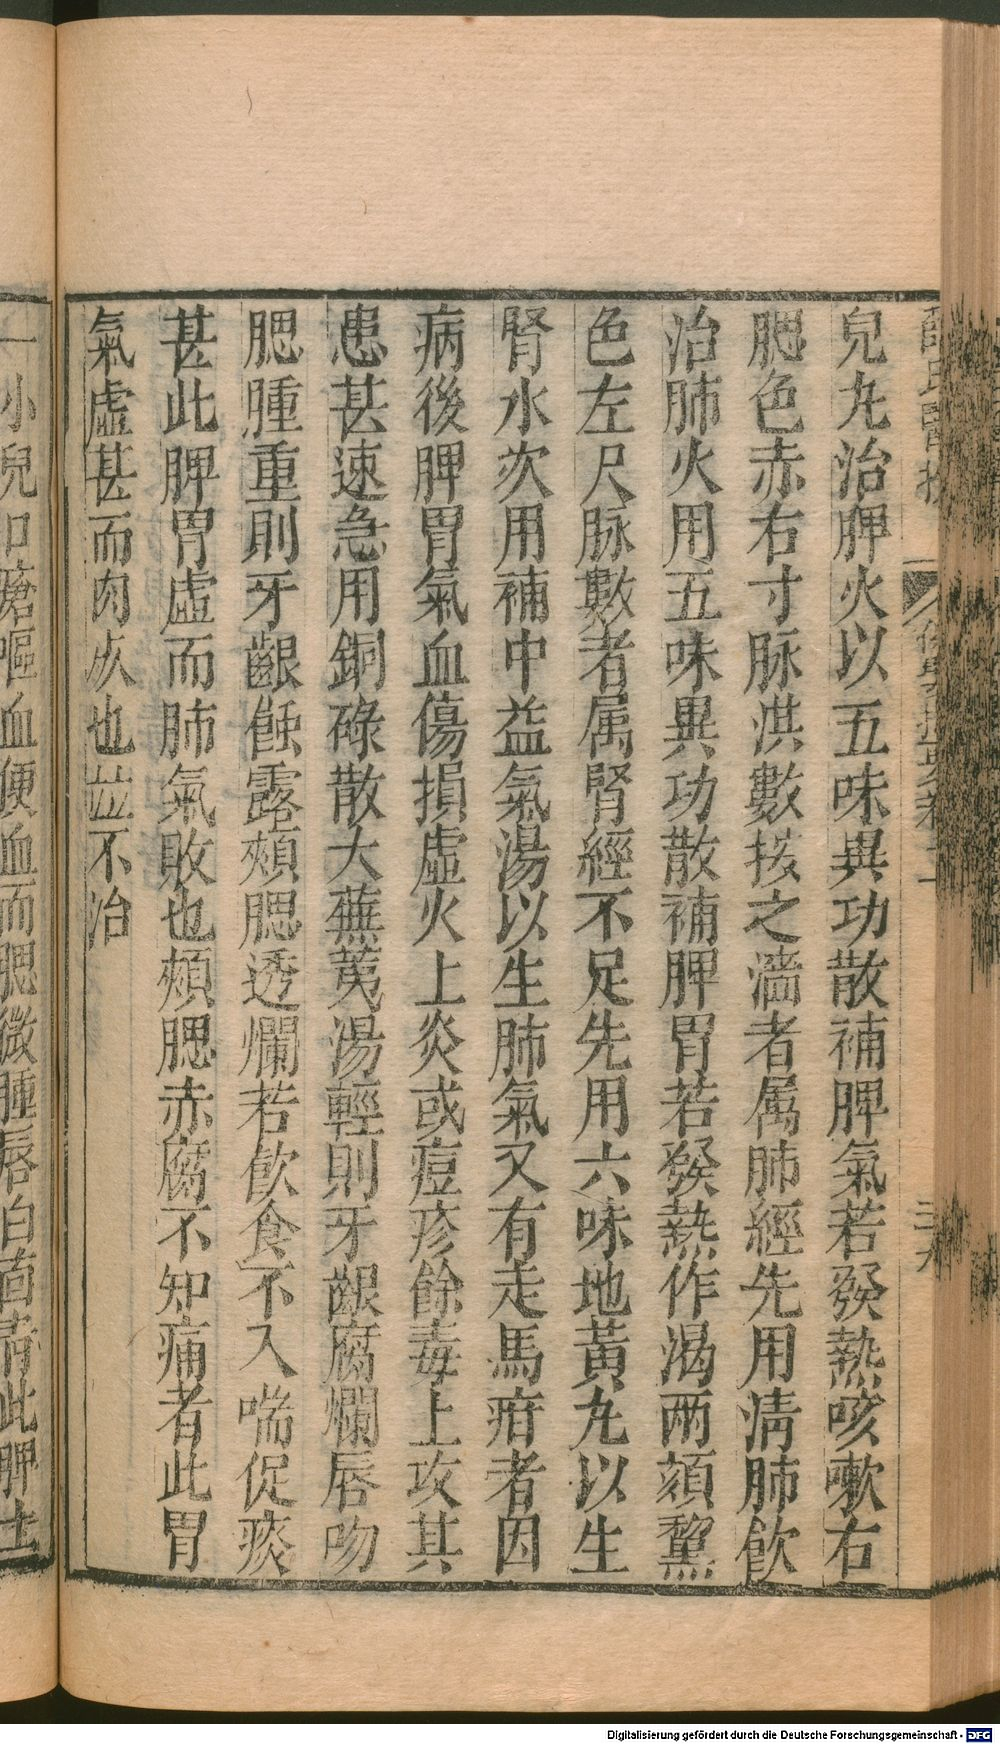 兒丸治脾火以五味異功散補脾氣若發熱咳嗽右
腮色赤右寸脉洪數按之濇者属肺經先用清肺飲
治肺火用五味異功散補脾胃若發熱作渴兩頦黧
色左尺脉數者属腎經不足先用六味地黃丸以生
腎水次用補中益氣湯以生肺氣又有走馬疳者因
病後脾胃氣血傷損虛火上炎或痘疹餘毒上攻其
患甚速急用銅碌散大蕪荑湯輕則牙齦腐爛唇吻
腮腫重則牙齦蝕露頰腮透爛若飲食不入喘促痰
甚此脾胃虛而肺氣敗也頰腮赤腐不知痛者此胃
氣虛甚而肉灰也並不治
一小兒口瘡嘔血便血而腮微腫唇白面青此脾土
Digitalisierung gefördert durch die Deutsche Forschungsgemeinschaft - DFG